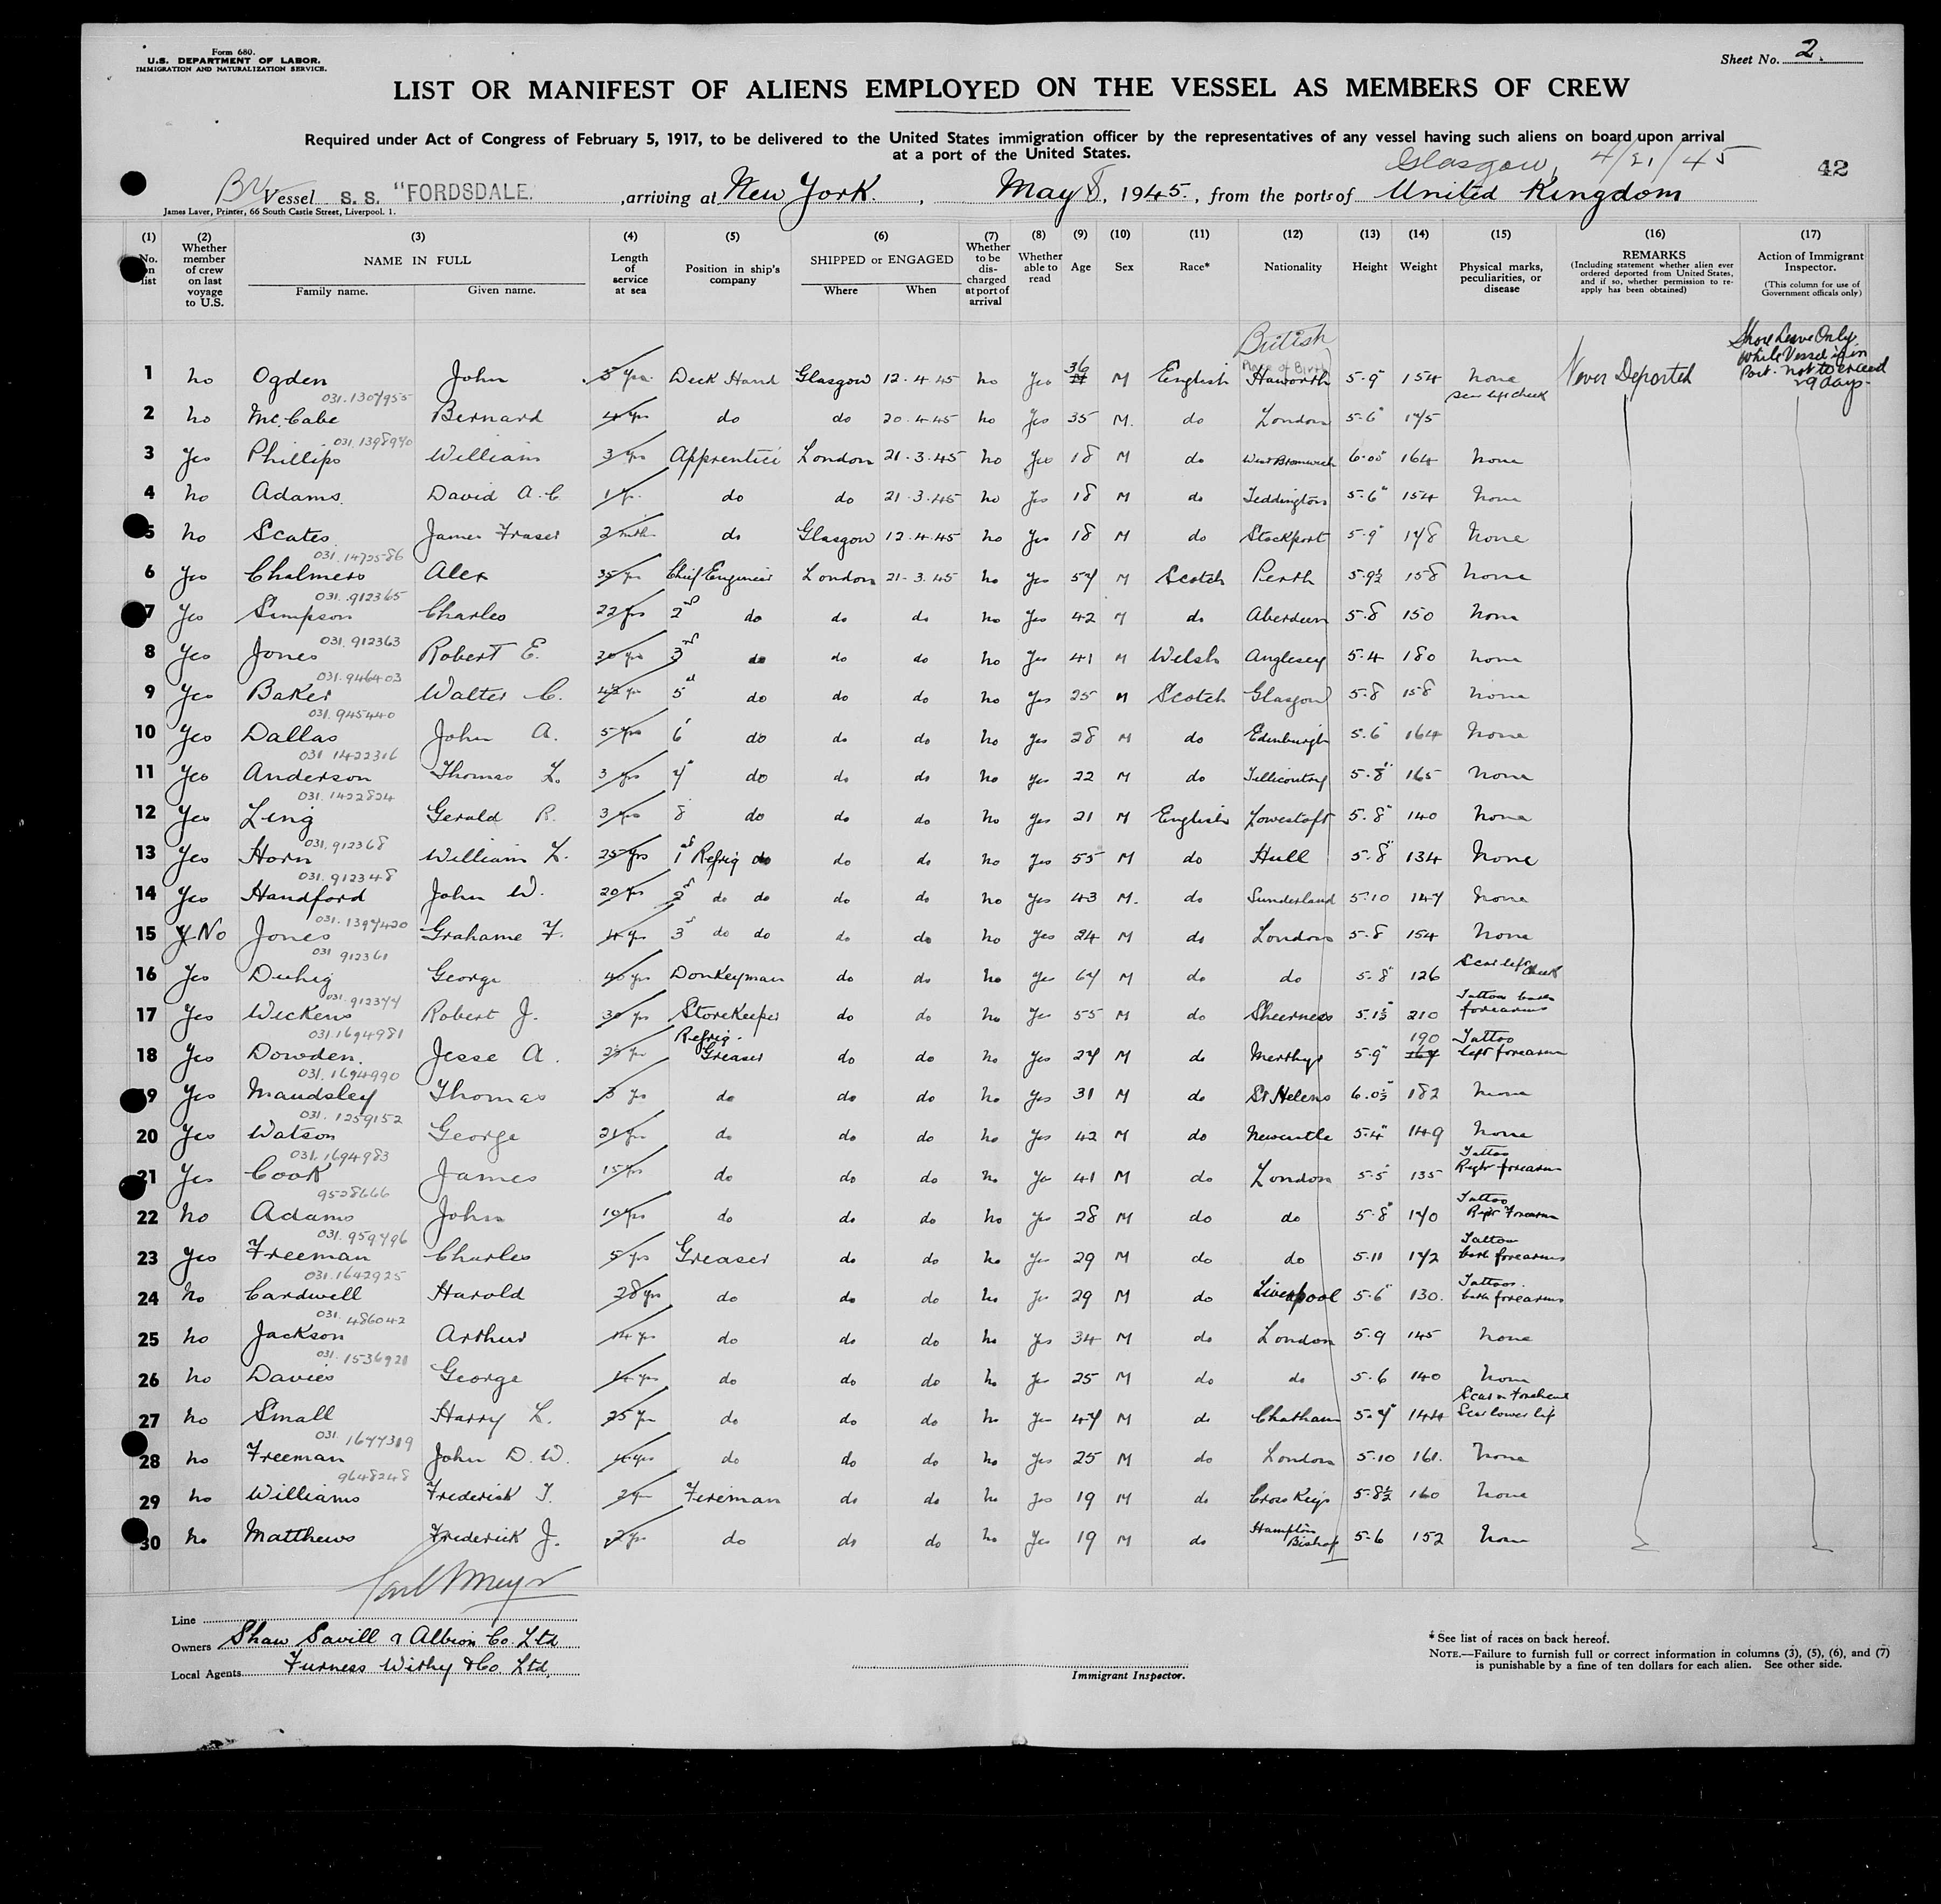 Form 680.
U.S. DEPARTMENT OF LABOR.
IMMIGRATION AND NATURALIZATION SERVICE.
Sheet No. 2.
LIST OR MANIFEST OF ALIENS EMPLOYED ON THE VESSEL AS MEMBERS OF CREW
Required under Act of Congress of February 5, 1917, to be delivered to the United States immigration officer by the representatives of any vessel having such aliens on board upon arrival
at a port of the United States.
Glasgow, 4/21/45
42
Br Vessel S. S. "FORDSDALE. , arriving at New York. , May 8, 1945. , from the ports of United Kingdom
James Laver, Printer, 66 South Castle Street, Liverpool. 1.
(1) No. on list (2) Whether member of crew on last voyage to U.S. (3) NAME IN FULL Family name. Given name. (4) Length of service at sea (5) Position in ship's company (6) SHIPPED or ENGAGED Where When (7) Whether to be discharged at port of arrival (8) Whether able to read (9) Age (10) Sex (11) Race* (12) Nationality (13) Height (14) Weight (15) Physical marks, peculiarities, or disease (16) REMARKS (Including statement whether alien ever ordered deported from United States, and if so, whether permission to re-apply has been obtained) (17) Action of Immigrant Inspector. (This column for use of Government officials only)
British
(Place of Birth)
Shore Leave Only while Vessel is in Port. not to exceed 29 days.
1 no Ogden John 5 yrs. Deck Hand Glasgow 12.4.45 no Yes 36 M English Haworth 5-9 154 none Never Deported
031.1307955
2 no McCabe Bernard 4 yrs do do 20.4.45 no Yes 35 M. do London 5-6 175 Scar left cheek
031.1398970
3 Yes Phillips William 3 yrs Apprentice London 21.3.45 no Yes 18 M do West Bromwich 6-00 164 none
4 no Adams David A.C 1 yr. do do 21.3.45 no Yes 18 M do Teddington 5-6 154 none
5 no Scates James Fraser 2 mth do Glasgow 12.4.45 no Yes 18 M do Stockport 5-9 178 none
031.1472586
6 Yes Chalmers Alex 35 yrs Chief Engineer London 21.3.45 no Yes 57 M Scotch Perth 5-9½ 158 none
031.912365
7 Yes Simpson Charles 22 yrs 2nd do do do no Yes 42 M do Aberdeen 5-8 150 none
031.912363
8 Yes Jones Robert E. 20 yrs 3rd do do do no Yes 41 M Welsh Anglesey 5-4 180 none
031.946403
9 Yes Baker Walter C. 4½ yrs 5 do do do no Yes 25 M Scotch Glasgow 5-8 158 none
031.945440
10 Yes Dallas John A. 5 yrs 6 do do do no Yes 28 M do Edinburgh 5-6 164 none
031 1422316
11 Yes Anderson Thomas L. 3 yrs 7 do do do no Yes 22 M do Tillicoultry 5-8 165 none
031.1422824
12 Yes Ling Gerald R. 3 yrs 8 do do do no Yes 21 M English Lowestoft 5-8 140 none
031.912368
13 Yes Horn William L. 25 yrs 1st Refrig do do do no Yes 55 M do Hull 5-8 134 none
031.912348
14 Yes Handford John W. 20 yrs 2 do do do do no Yes 43 M. do Sunderland 5-10 147 none
031.1397420
15 No Jones Grahame F. 4 yrs 3 do do do do no Yes 24 M do London 5-8 154 none
031 912361
16 Yes Duhig George 40 yrs Donkeyman do do no Yes 67 M do do 5-8 126 Scar left cheek
031.912377
17 Yes Wickens Robert J. 30 yrs Storekeeper do do no Yes 55 M do Sheerness 5-1½ 210 Tattoo both forearms
031.1694981
18 Yes Dowden. Jesse A. Refrig. Greaser do do no Yes 27 M do Merthyr 5-9 190 Tattoo left forearm
031.1694990
19 Yes Maudsley Thomas 3 yrs do do do no Yes 31 M do St Helens 6-0½ 182 none
031.1259152
20 Yes Watson George 21 yrs do do do no Yes 42 M do Newcastle 5-4 149 none
031.1694983
21 Yes Cook James 15 yrs do do do no Yes 41 M do London 5-5 135 Tattoo Right forearm
9528666
22 no Adams John 10 yrs do do do no Yes 28 M do do 5-8 170 Tattoo Right Forearm
031.959796
23 Yes Freeman Charles 5 yrs Greaser do do no Yes 29 M do do 5-11 172 Tattoo both forearms
031.1642925
24 no Cardwell Harold 28 yrs do do do no Yes 29 M do Liverpool 5-6 130. Tattoos. both forearms
031.486042
25 no Jackson Arthur 14 yrs do do do no Yes 34 M do London 5-9 145 none
031.1536921
26 no Davies George do do do no Yes 25 M do do 5-6 140 none
27 no Small Harry L. 25 yrs do do do no Yes 47 M do Chatham 5-7 144 Scar on Forehead Scar lower lip
031.1677319
28 no Freeman John D. W. do do do no Yes 25 M do London 5-10 161. none
9648248
29 no Williams Frederick T. Fireman do do no Yes 19 M do Cross Keys 5-8½ 160 none
30 no Matthews Frederick J. 2 yrs do do do no Yes 19 M do Hampton Bishop 5-6 152 none
Line
Owners Shaw Savill & Albion Co. Ltd
Local Agents Furness Withy & Co. Ltd.
Immigrant Inspector.
* See list of races on back hereof.
NOTE.—Failure to furnish full or correct information in columns (3), (5), (6), and (7)
is punishable by a fine of ten dollars for each alien. See other side.